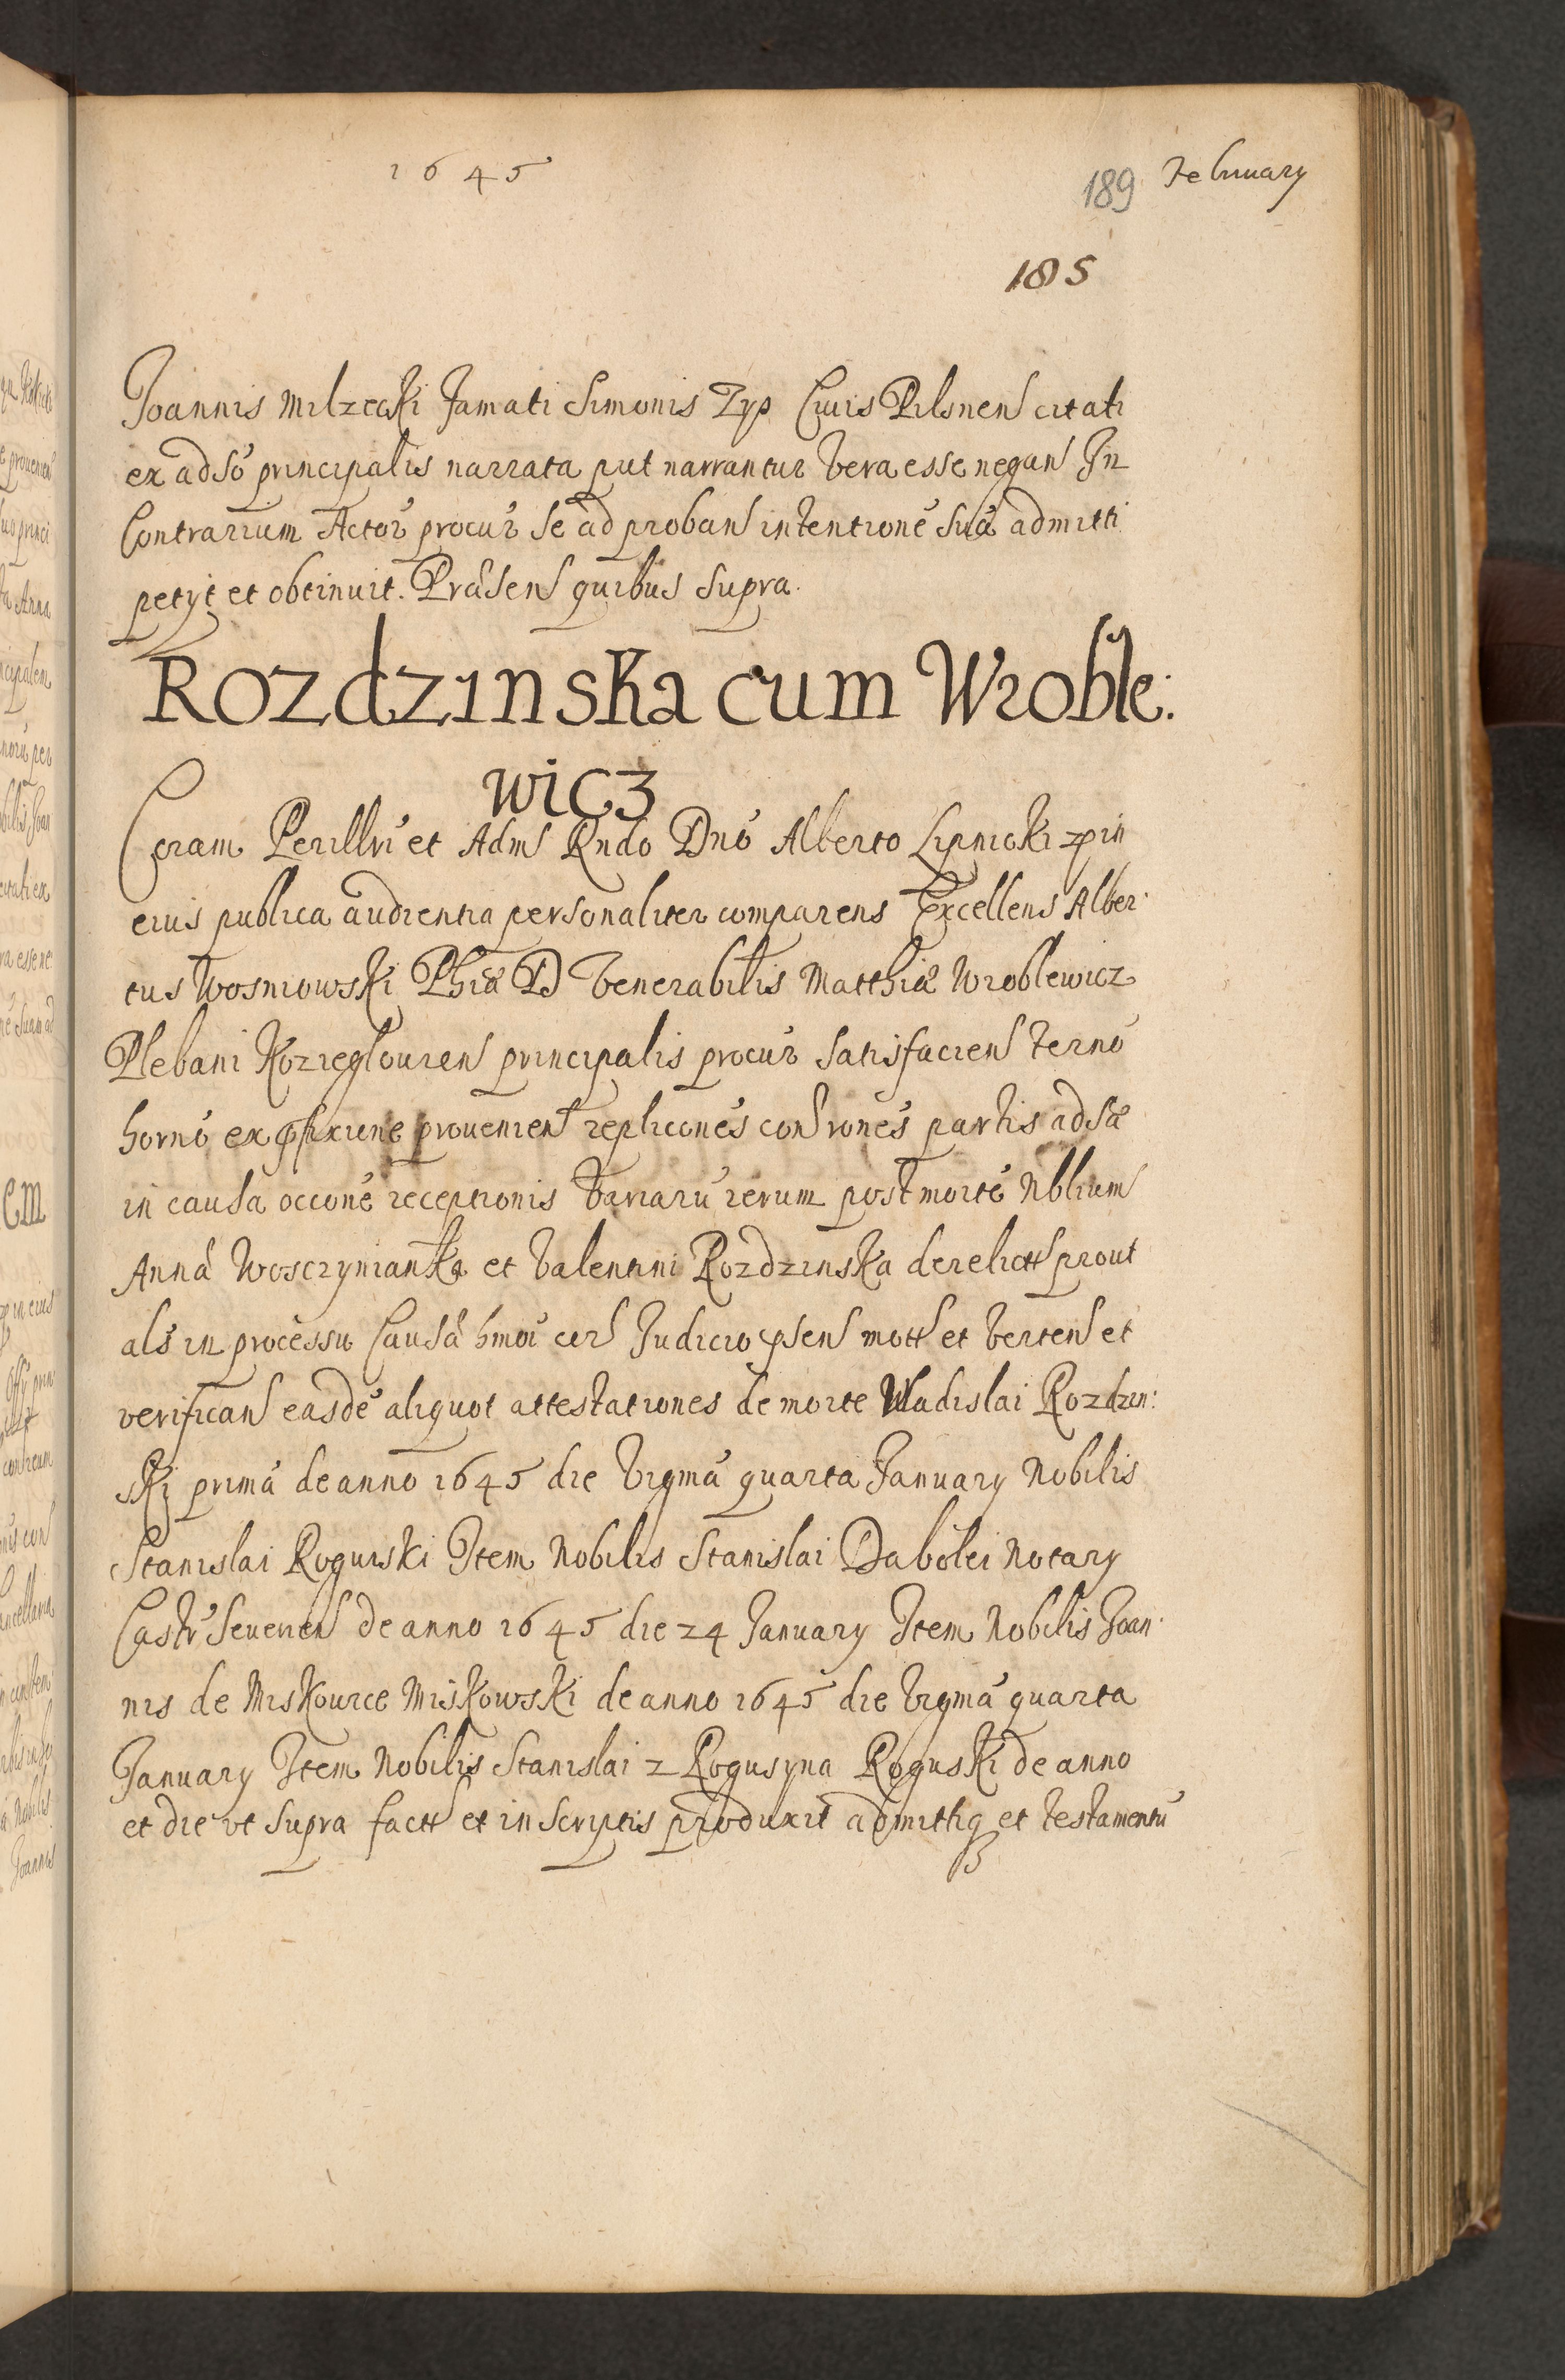 1645
189 February
185
Joannis Milzecki Famati Simonis Zyp Ciuis Pilsnen citati
ex adso principalis narrata put narrantur vera esse negan In
Contrarium Actor procur se ad proban intentione sua admitti
petyt et obtinuit. Præsen quibus supra.
Rozdzinska cum Wroble:
wicz
Coram Perillri et Adm Rndo Dno Alberto Lipnicki zp in
eius publica audientia personaliter comparens Excellens Alber
tus Wosniowski Phiæ D Venerabilis Matthiæ Wroblewicz
Plebani Kozieglouien principalis procur satisfacien terno
horno ex prouenien replicones partis adsæ
in causa occone receptionis variaru rerum post morte Nblium
Anna Wosczynianka et Valentini Rozdzinska derelictt prout
als in processu Causæ hmoi cor Judicio psen mott et verten et
verifican easde aliquot attestationes de morte Wladislai Rozdzin:
ski prima de anno 1645 die vigma quarta January Nobilis
Stanislai Roguiski Item Nobilis Stanislai Dabolei Notary
Castr Seuerien de anno 1645 die 24 January Item Nobilis Joan
nis de Miskourice Miskowski de anno 1645 die vigma quarta
January Item Nobilis Stanislai z Rogusyna Roguski de anno
et die vt supra factt et in scriptis produxit admittiq et testamentu